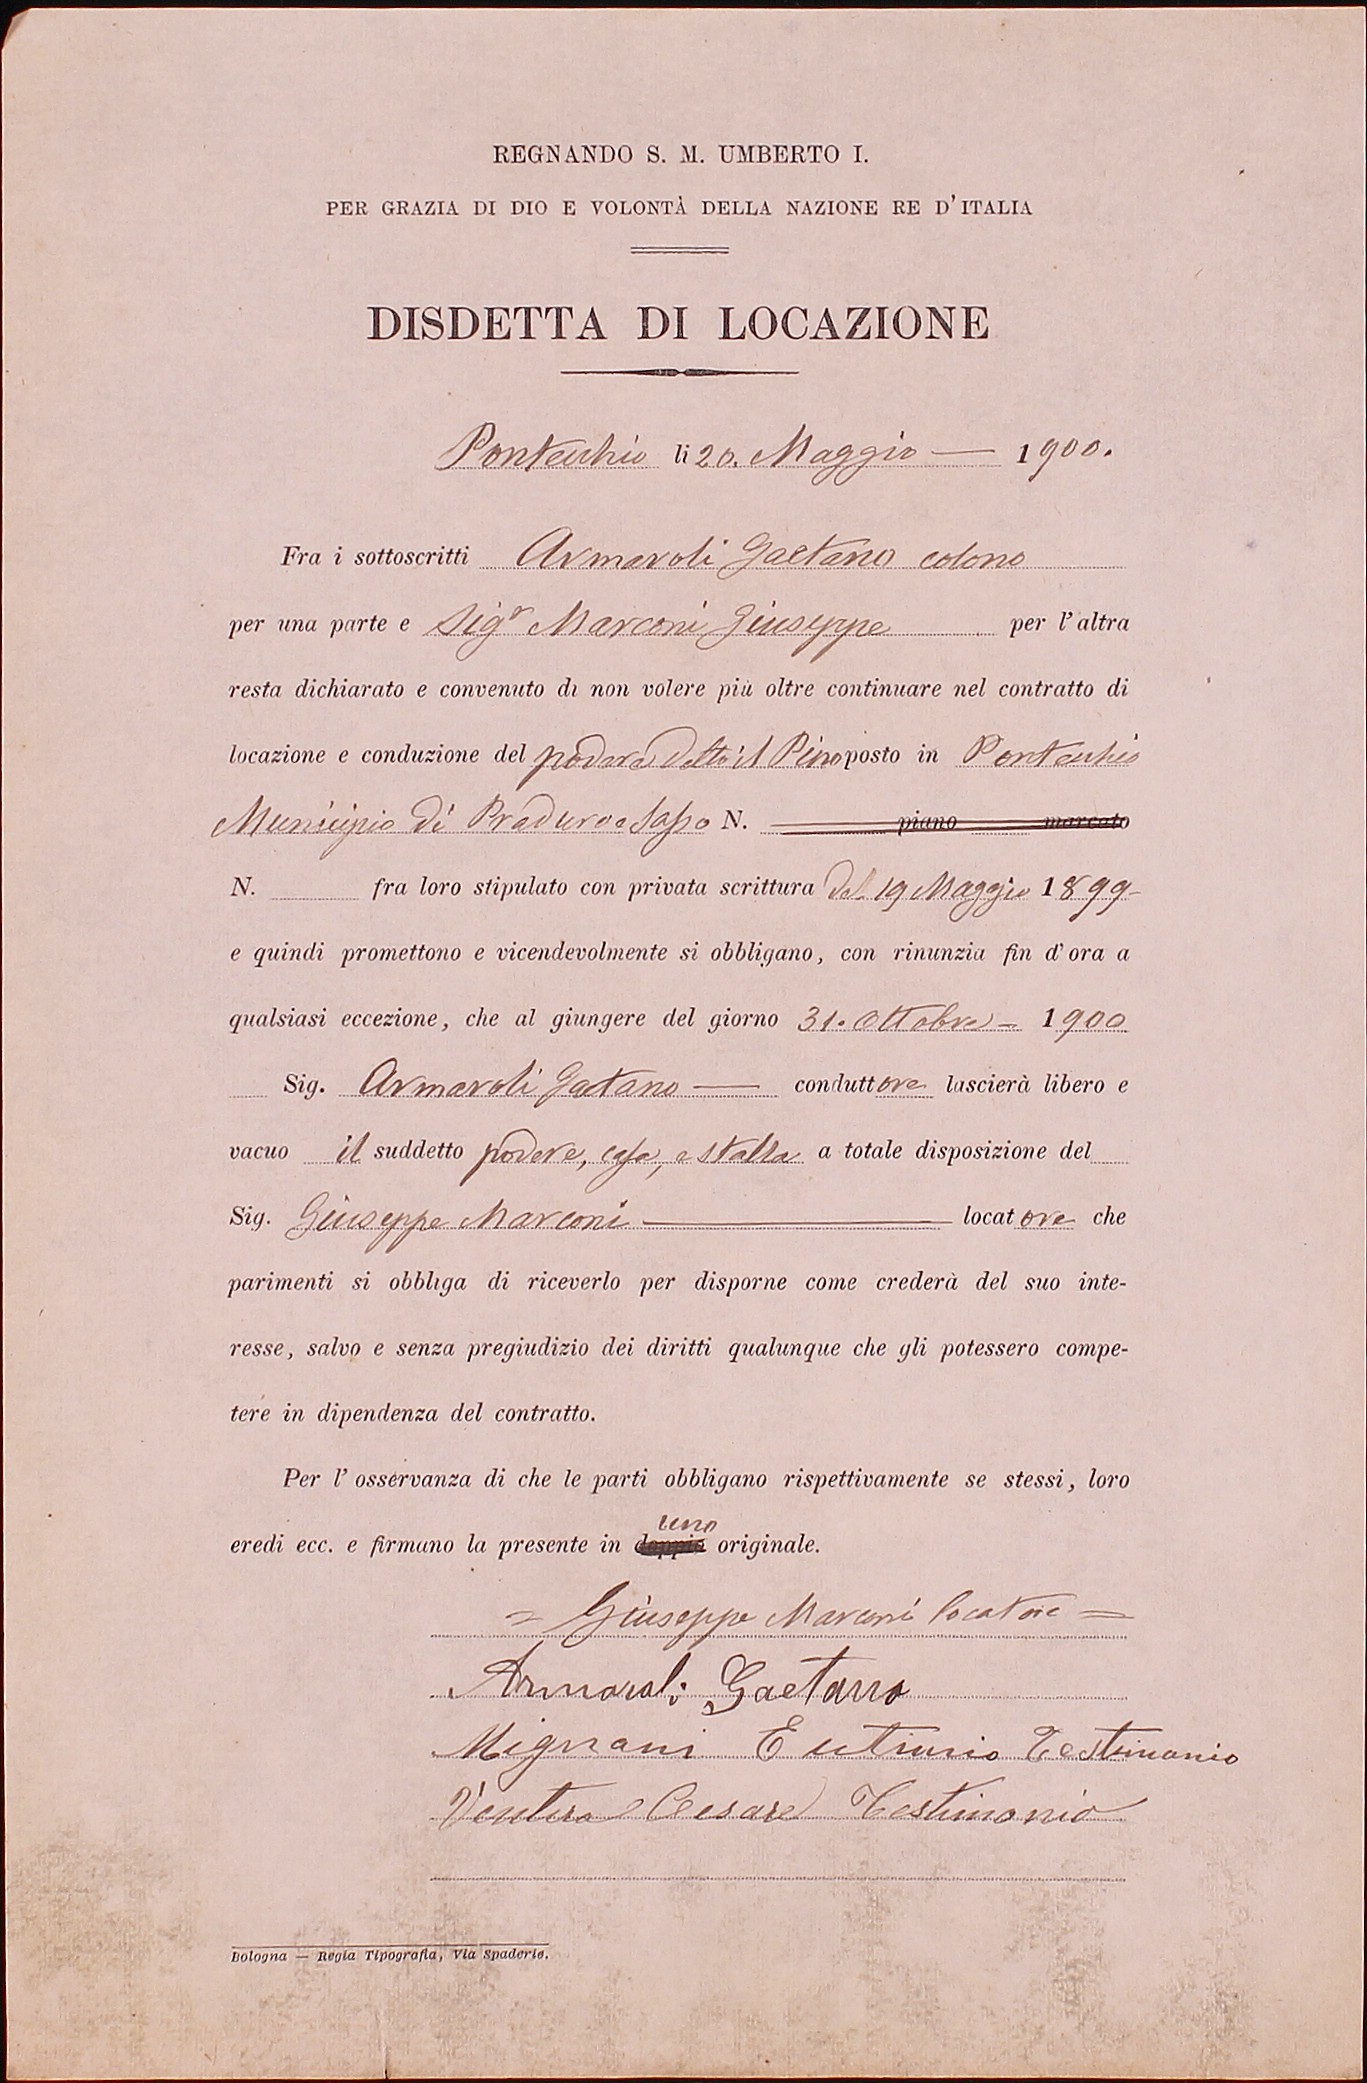 REGNANDO S. M. UMBERTO I.
PER GRAZIA DI DIO E VOLONTÀ DELLA NAZIONE RE D'ITALIA
DISDETTA DI LOCAZIONE
Pontecchio li 20. Maggio — 1900.
Fra i sottoscritti Armaroli Gaetano colono
per una parte e Sigr Marconi Giuseppe per l'altra
resta dichiarato e convenuto di non volere più oltre continuare nel contratto di
locazione e conduzione del podere detto il Pino posto in Pontecchio
Municipio di Praduro e Sasso N. piano marcato
N. fra loro stipulato con privata scrittura del 19 Maggio 1899
e quindi promettono e vicendevolmente si obbligano, con rinunzia fin d'ora a
qualsiasi eccezione, che al giungere del giorno 31. Ottobre – 1900
Sig. Armaroli Gaetano — conduttore lascierà libero e
vacuo il suddetto podere, casa, e stalla a totale disposizione del
Sig. Giuseppe Marconi — locatore che
parimenti si obbliga di riceverlo per disporne come crederà del suo inte-
resse, salvo e senza pregiudizio dei diritti qualunque che gli potessero compe-
tere in dipendenza del contratto.
Per l'osservanza di che le parti obbligano rispettivamente se stessi, loro
uno
eredi ecc. e firmano la presente in doppio originale.
= Giuseppe Marconi locatore =
Armaroli Gaetano
Mignani Eutimio Testimonio
Ventura Cesare Testimonio
Bologna — Regia Tipografia, Via Spaderie.